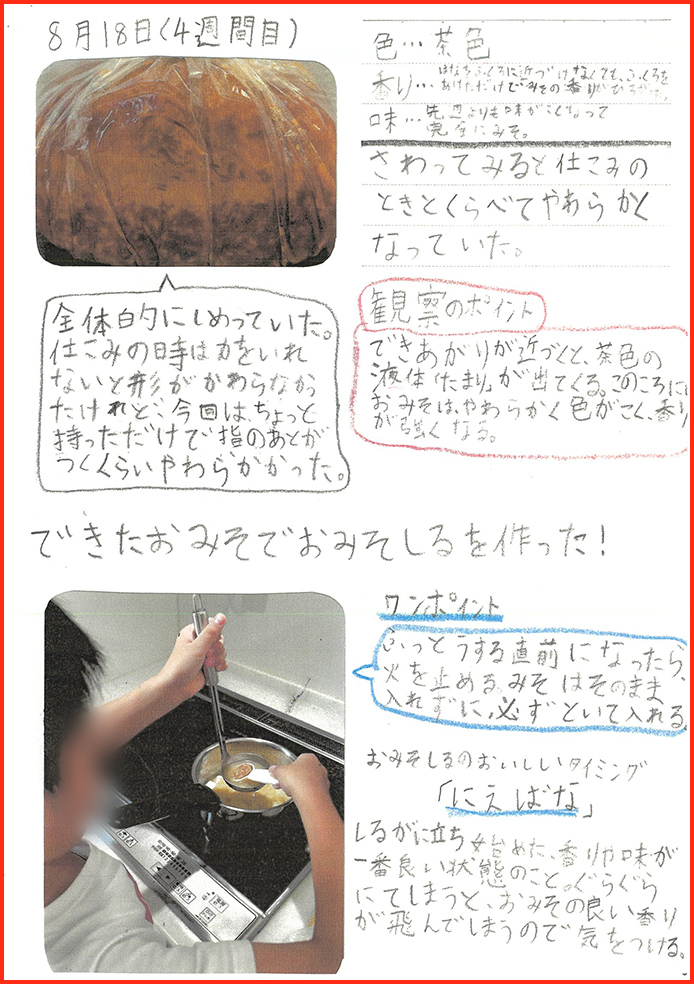 8月18日(4週間目)
色…茶色
香り…はなをふくろに近づけなくても、ふくろを
あけただけでみその香りがひろがった。
味…先週よりも味がこくなって
完全にみそ。
さわってみると仕こみの
ときとくらべてやわらかく
なっていた。
全体的にしめっていた。
仕こみの時は力をいれ
ないと形がかわらなかっ
たけれど、今回は、ちょっと
持っただけで指のあとが
つくくらいやわらかかった。
観察のポイント
できあがりが近づくと、茶色の
液体「たまり」が出てくる。このころに
おみそは、やわらかく色がこく、香り
が強くなる。
できたおみそでおみそしるを作った!
ワンポイント
ふっとうする直前になったら、
火を止めるみそはそのまま
入れずに、必ずといて入れる。
おみそしるのおいしいタイミング
「にえばな」
しるがに立ち始めた、香りや味が
一番良い状態のこと。ぐらぐら
にてしまうと、おみその良い香り
が飛んでしまうので気をつける。